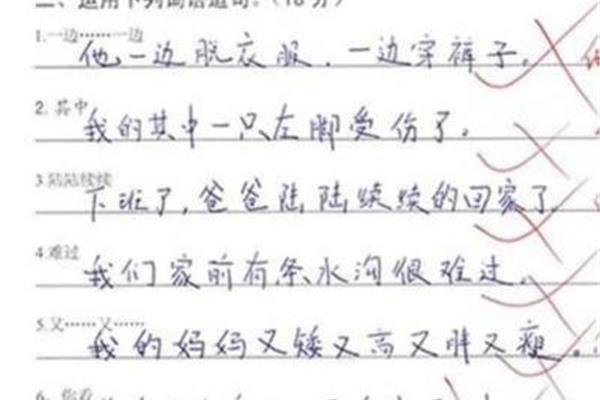 二、运用下列词语造句。(18分)
1.一边……一边
他一边脱衣服,一边穿裤子。
2. 其中
我的其中一只左脚受伤了。
3.陆陆续续
下班了,爸爸陆陆续续的回家了
4.难过
我们家前有条水沟很难过。
5.又……又……
我的妈妈又矮又高又胖又瘦。
6、你看